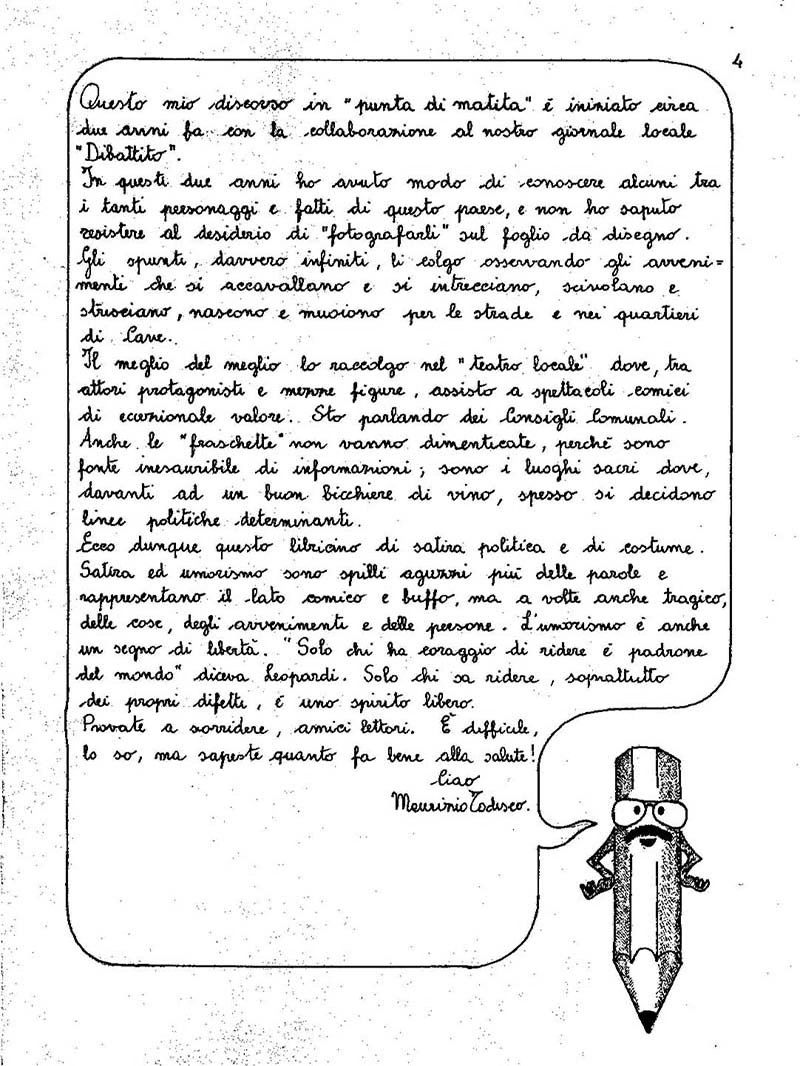 4
Questo mio discorso in "punta di matita" è iniziato circa
due anni fa con la collaborazione al nostro giornale locale
"Dibattito".
In questi due anni ho avuto modo di conoscere alcuni tra
i tanti personaggi e fatti di questo paese, e non ho saputo
resistere al desiderio di "fotografarli" sul foglio da disegno.
Gli spunti, davvero infiniti, li colgo osservando gli avveni=
menti che si accavallano e si intrecciano, scivolano e
strusciano, nascono e muoiono per le strade e nei quartieri
di Cave.
Il meglio del meglio lo raccolgo nel "teatro locale" dove, tra
attori protagonisti e mezze figure, assisto a spettacoli comici
di eccezionale valore. Sto parlando dei Consigli Comunali.
Anche le "fraschette" non vanno dimenticate, perchè sono
fonte inesauribile di informazioni; sono i luoghi sacri dove,
davanti ad un buon bicchiere di vino, spesso si decidono
linee politiche determinanti.
Ecco dunque questo libricino di satira politica e di costume.
Satira ed umorismo sono spilli aguzzi più delle parole e
rappresentano il lato comico e buffo, ma a volte anche tragico,
delle cose, degli avvenimenti e delle persone. L'umorismo è anche
un segno di libertà. "Solo chi ha coraggio di ridere è padrone
del mondo" diceva Leopardi. Solo chi sa ridere, soprattutto
dei propri difetti, è uno spirito libero.
Provate a sorridere, amici lettori. È difficile,
lo so, ma sapeste quanto fa bene alla salute!
Ciao
Maurizio Todisco.